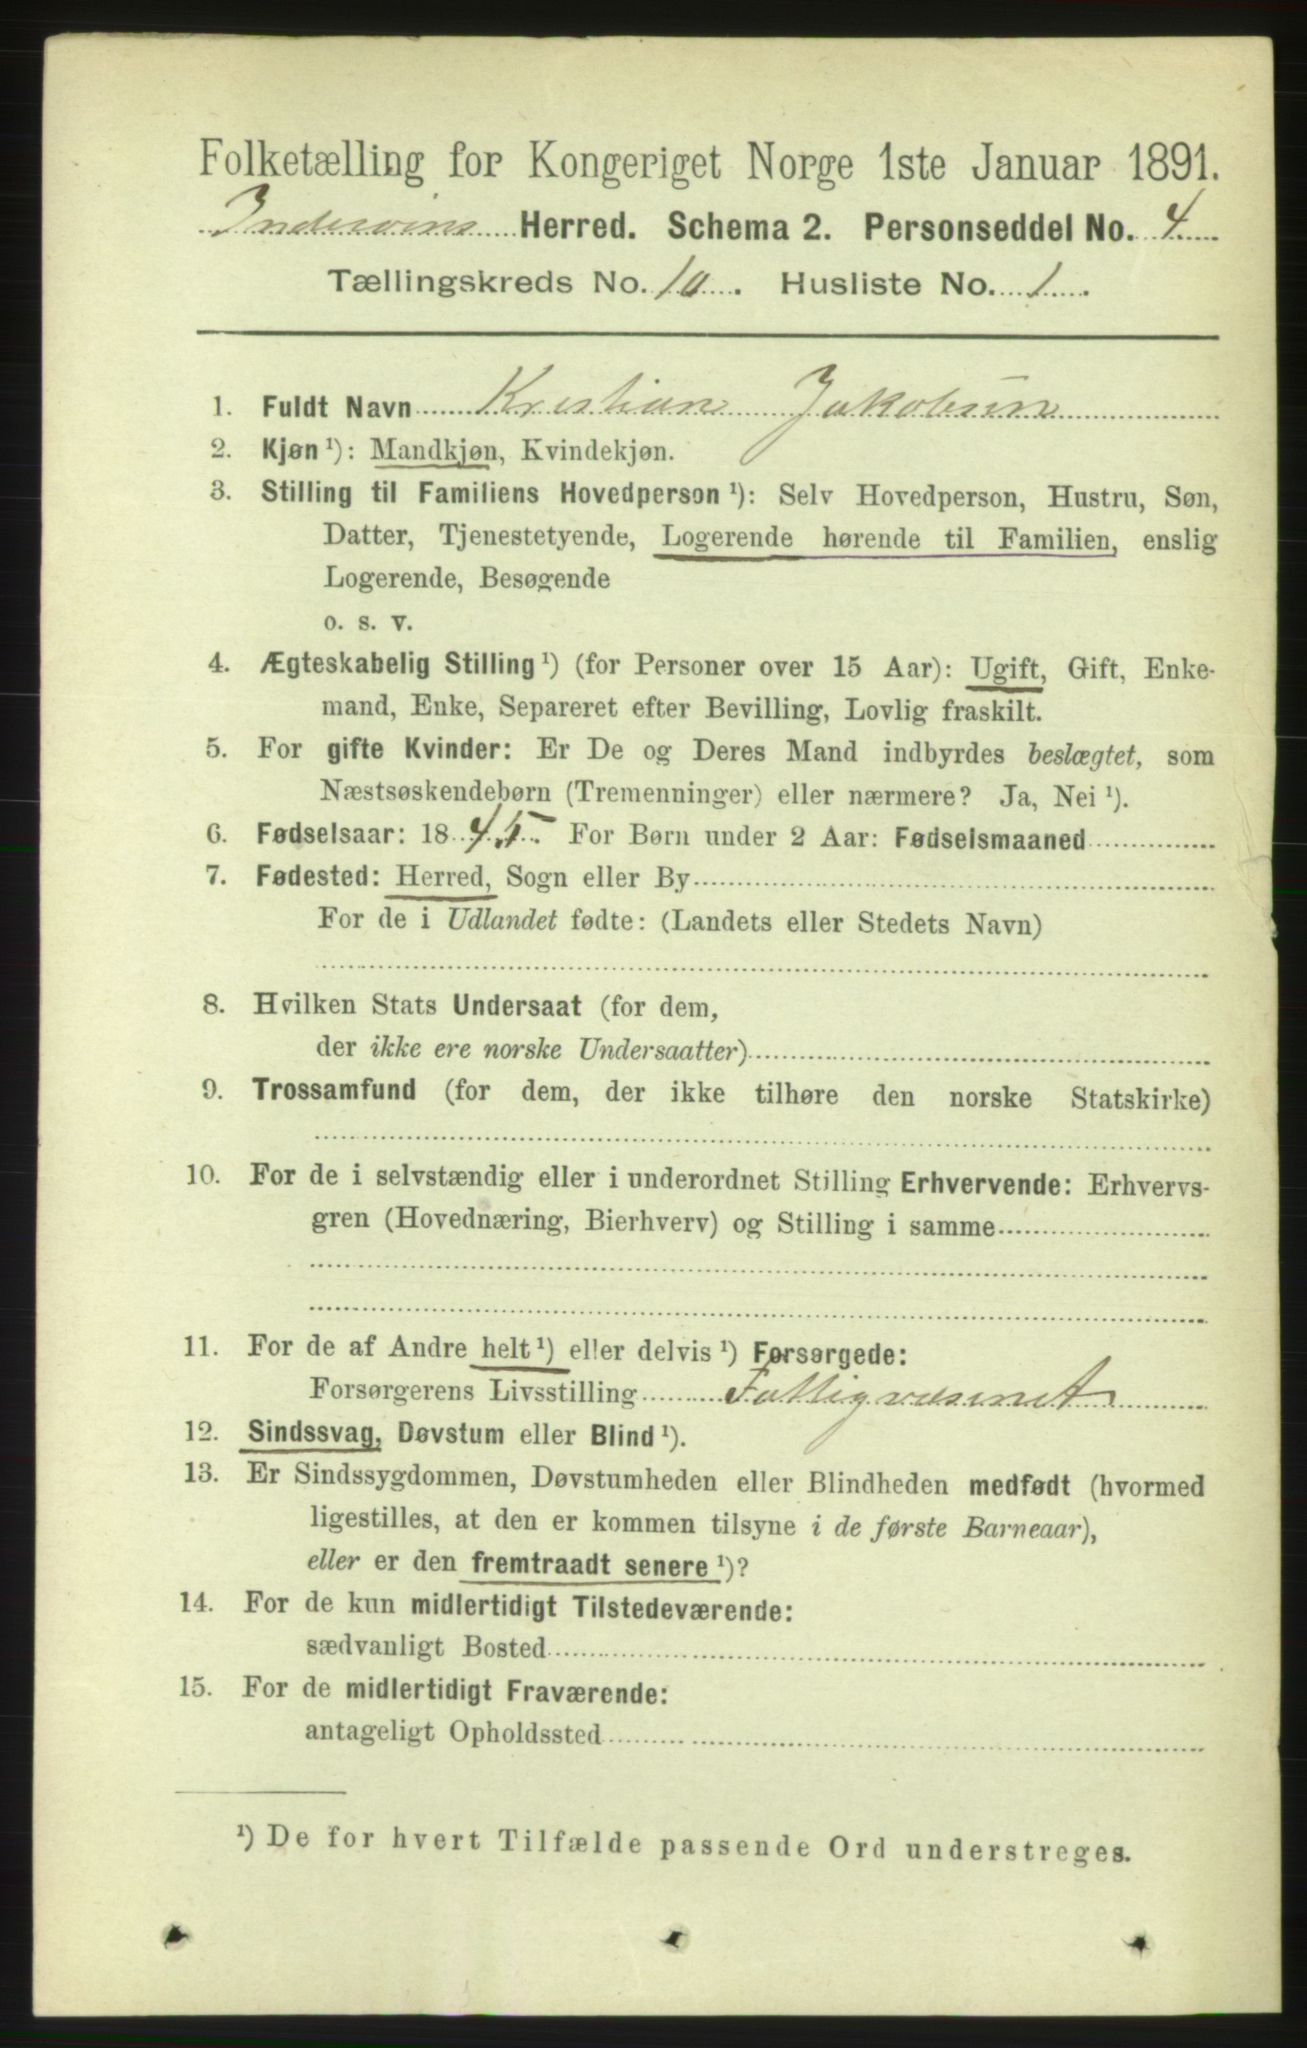 Folketælling for Kongeriget Norge 1ste Januar 1891.
Inderøens Herred. Schema 2. Personseddel No. 4
Tællingskreds No. 10. Husliste No. 1.
1. Fuldt Navn Kristian Jakobsen
2. Kjøn ¹): Mandkjøn, Kvindekjøn.
3. Stilling til Familiens Hovedperson ¹): Selv Hovedperson, Hustru, Søn,
Datter, Tjenestetyende, Logerende hørende til Familien, enslig
Logerende, Besøgende
o. s. v.
4. Ægteskabelig Stilling ¹) (for Personer over 15 Aar): Ugift, Gift, Enke-
mand, Enke, Separeret efter Bevilling, Lovlig fraskilt.
5. For gifte Kvinder: Er De og Deres Mand indbyrdes beslægtet, som
Næstsøskendebørn (Tremenninger) eller nærmere? Ja, Nei ¹).
6. Fødselsaar: 1845. For Børn under 2 Aar: Fødselsmaaned
7. Fødested: Herred, Sogn eller By
For de i Udlandet fødte: (Landets eller Stedets Navn)
8. Hvilken Stats Undersaat (for dem,
der ikke ere norske Undersaatter)
9. Trossamfund (for dem, der ikke tilhøre den norske Statskirke)
10. For de i selvstændig eller i underordnet Stilling Erhvervende: Erhvervs-
gren (Hovednæring, Bierhverv) og Stilling i samme
11. For de af Andre helt ¹) eller delvis ¹) Forsørgede:
Forsørgerens Livsstilling Fattigvæsenet
12. Sindssvag, Døvstum eller Blind ¹).
13. Er Sindssygdommen, Døvstumheden eller Blindheden medfødt (hvormed
ligestilles, at den er kommen tilsyne i de første Barneaar),
eller er den fremtraadt senere ¹)?
14. For de kun midlertidigt Tilstedeværende:
sædvanligt Bosted
15. For de midlertidigt Fraværende:
antageligt Opholdssted
¹) De for hvert Tilfælde passende Ord understreges.